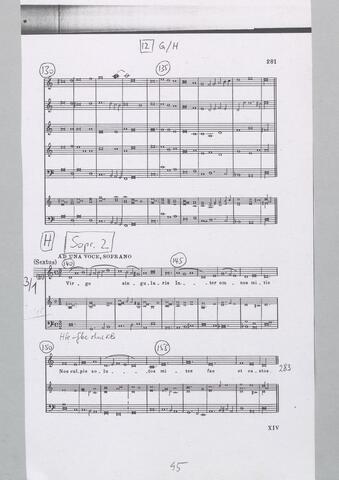 12 G/H
281
130
135
H
Sopr. 2
AD UNA VOCE, SOPRANO
(Sextus)
140
145
3/1
Vir-go sin-gu-laris In-ter om-nes mitis
150
155
283
Nos cul-pis so-lu-tos mi-tes fac et castos
XIV
45